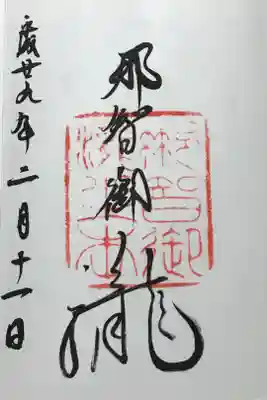 那智御瀧
成廿九年二月十一日